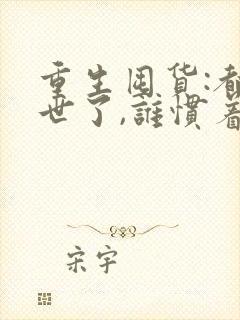 重生囤货:都
世了,誰慣着
宋宇